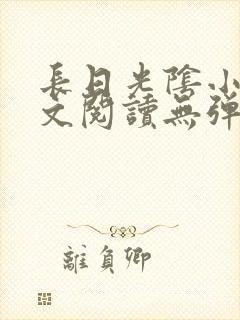 長日光陰小
文閱讀無彈
離負卿